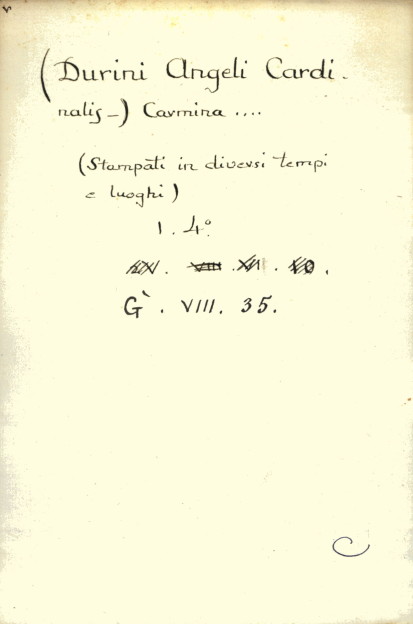 (Durini Angeli Cardi-
nalis-) Carmina ....
(Stampati in diversi tempi
e luoghi)
1. 4°.
VIII.
G̀. VIII. 35.
C